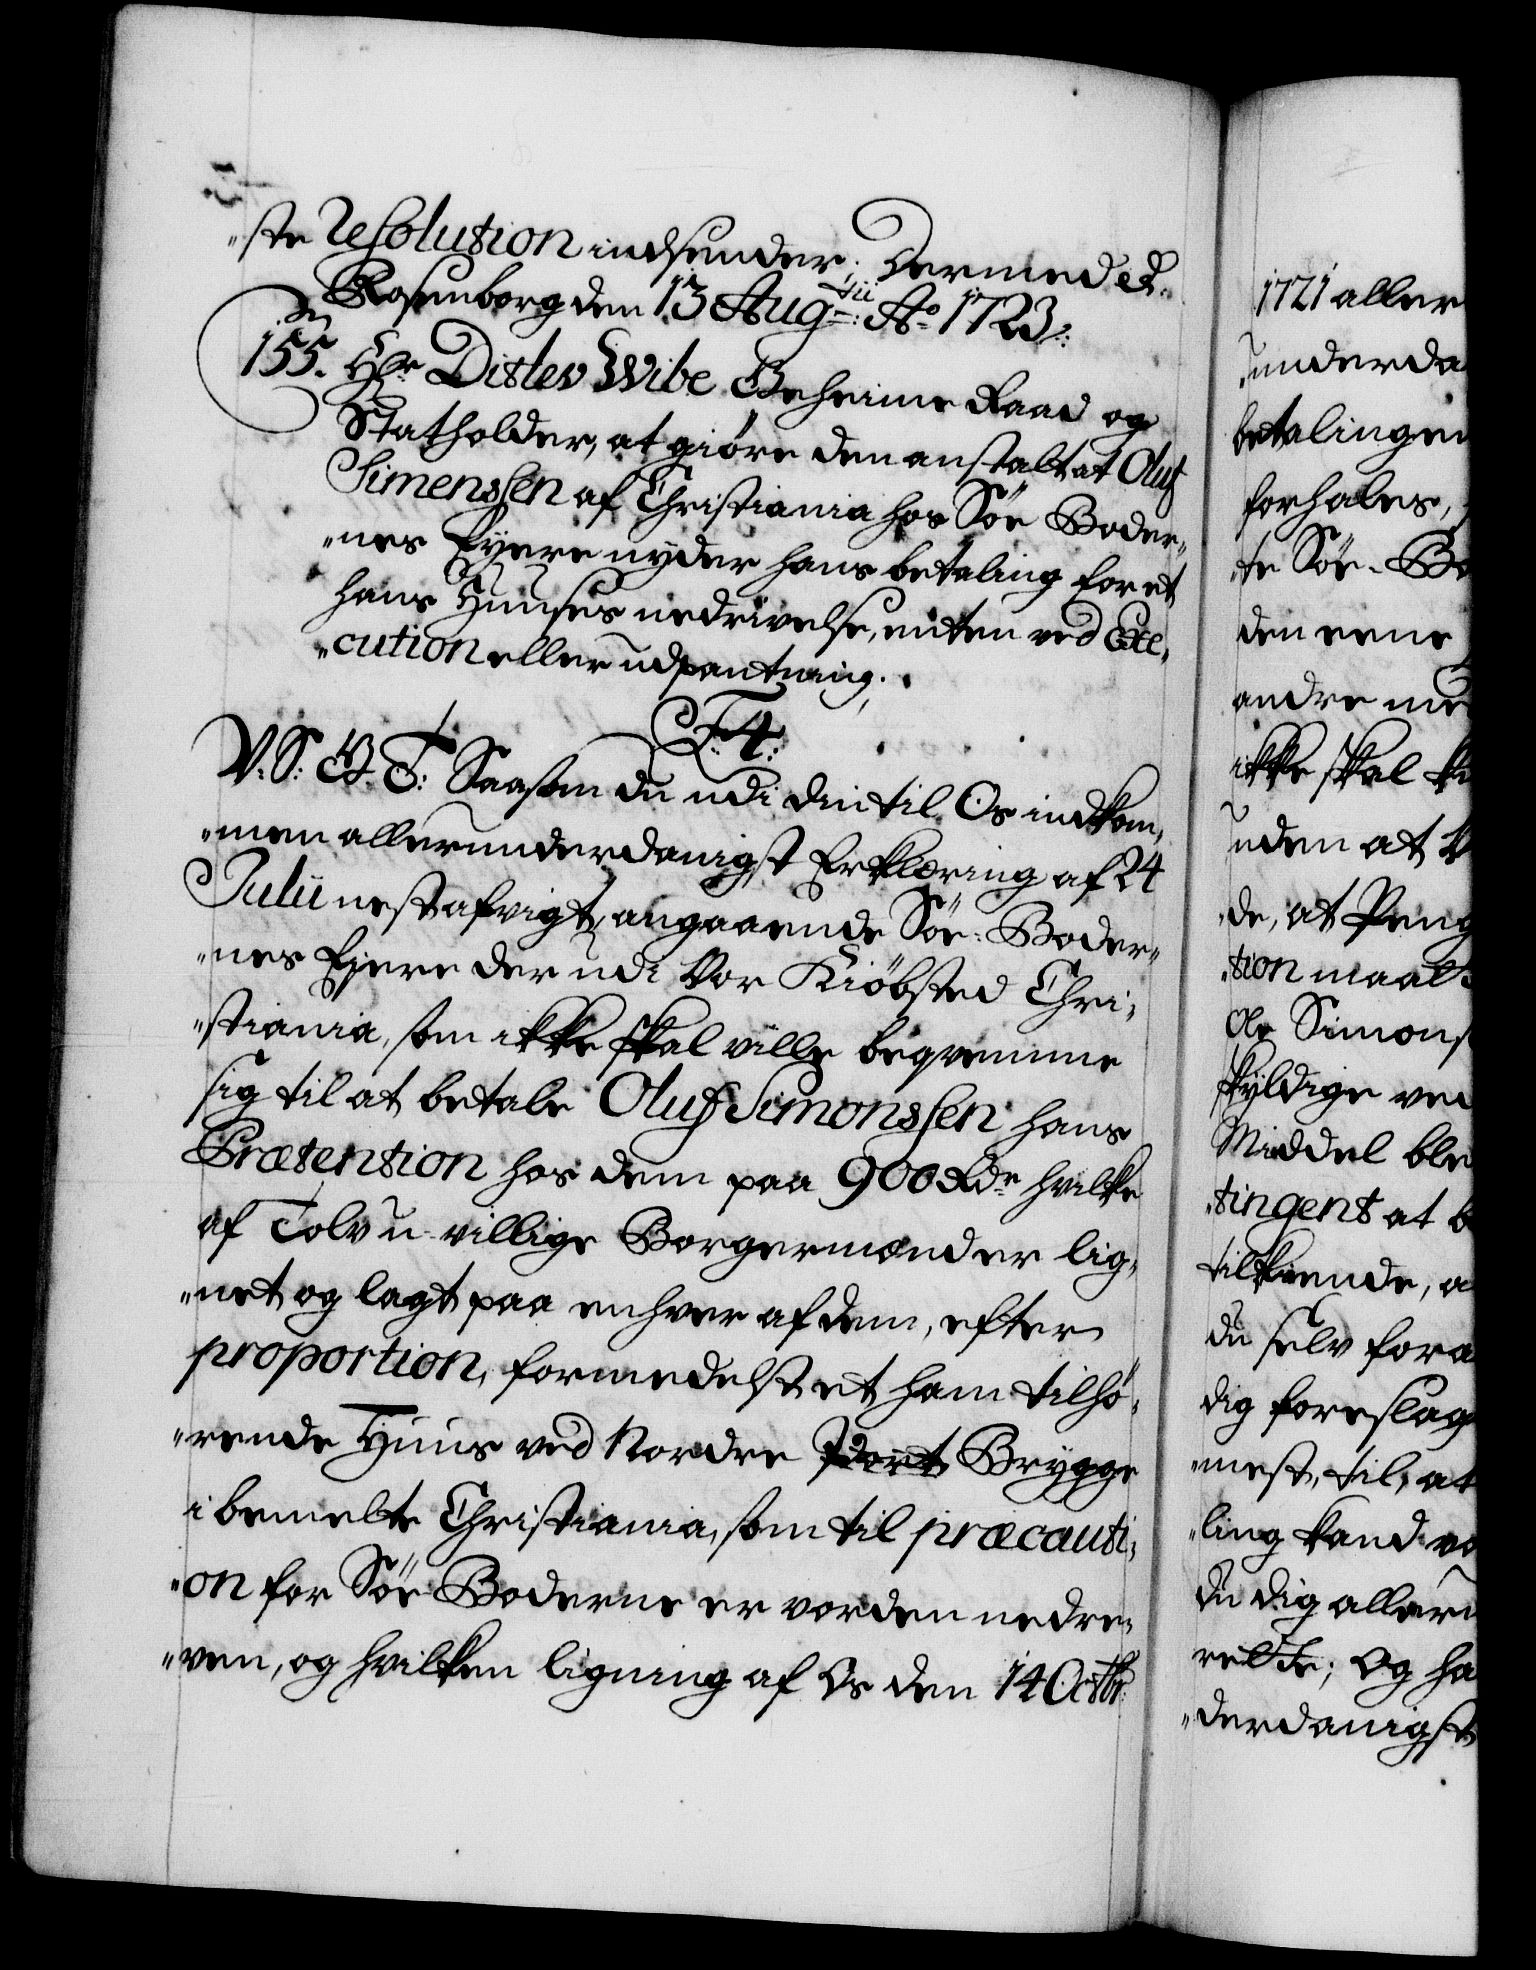 "ste Resolution indsender. Dermed etc.
Rosenborg den 13 Augtii Ao 1723.
155. Hr Ditlev Wibe Geheime Raad og
Statholder, at giöre den anstalt at Oluf
Simenssen af Christiania hos Söe Boder„
„nes Eyere nyder hans betaling for et
hans Huuses nedrivelse, enten ved Exe„
„cution eller udpantning.
F. 4.
V. S. G. T: Saasom du udi din til Os indkom„
„men allerunderdanigst Erklæring af 24
Julii nestafvigt, angaaende Söe-Boder„
„nes Ejere der udi Vor Kiöbsted Chri„
„stiania, som ikke skal ville beqvemme
sig til at betale Oluf Simonssen hans
Prætention hos dem paa 900 Rdr hvilke
af Tolv u-villige Borgermænd er lig„
„net og lagt paa enhver af dem, efter
proportion, formedelst et ham tilhö„
„rende Huus ved Nordre Brygge
i bemelte Christiania, som til præcauti„
„on for Söe Boderne er vorden nedre„
„ven, og hvilken ligning af Os den 14 Octbr:
1721 aller
underda
betalingen
forhales,
te Söe-Bo
den eene
andre me
ikke skal k
uden at V
de, at Peng
„tion maat
Ole Simons
skyldige ved
Middel ble
„tingent at b
tilkiende, a
du selv fora
dig foreslag
„mest, til, at
„ling kand vo
du dig alleru
rette; Og ha
„derdanigst